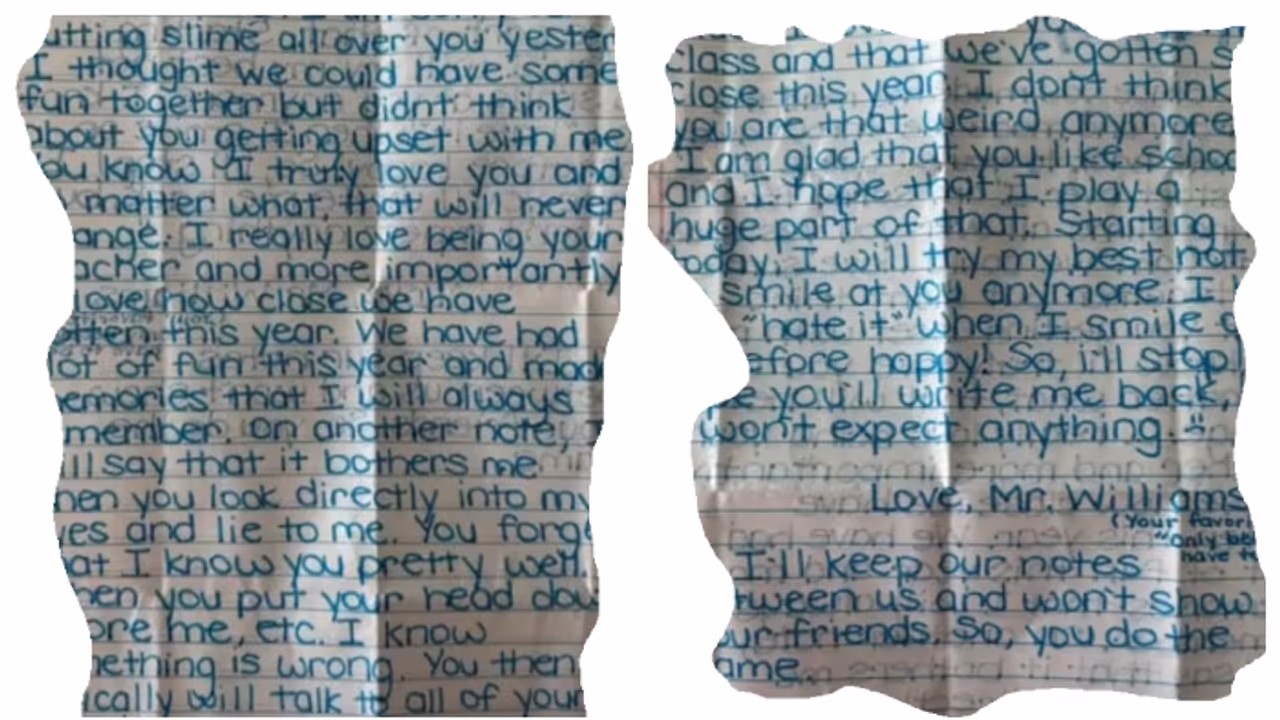 utting slime all over you yester
I thought we could have some
fun together but didnt think
about you getting upset with me
ou know I truly love you and
matter what, that will never
ange. I really love being your
acher and more importantly
love how close we have
otten this year. We have had
lot of fun this year and mad
emories that I will always
member. On another note, I
ill say that it bothers me
hen you look directly into my
yes and lie to me. You forge
at I know you pretty well.
hen you put your head dow
ore me, etc. I know
nething is wrong. You then
ically will talk to all of your
class and that we've gotten s
close this year. I don't think
you are that weird anymore
I am glad that you like schoo
and I hope that I play a
huge part of that. Starting
oday, I will try my best not
smile at you anymore. I
"hate it" when I smile
efore happy! So, i'll stop
e you'll write me back,
won't expect anything.
Love, Mr. Williams
(Your favori
"only bo
have to
I'll keep our notes
tween us and won't show
our friends. So, you do the
ame.